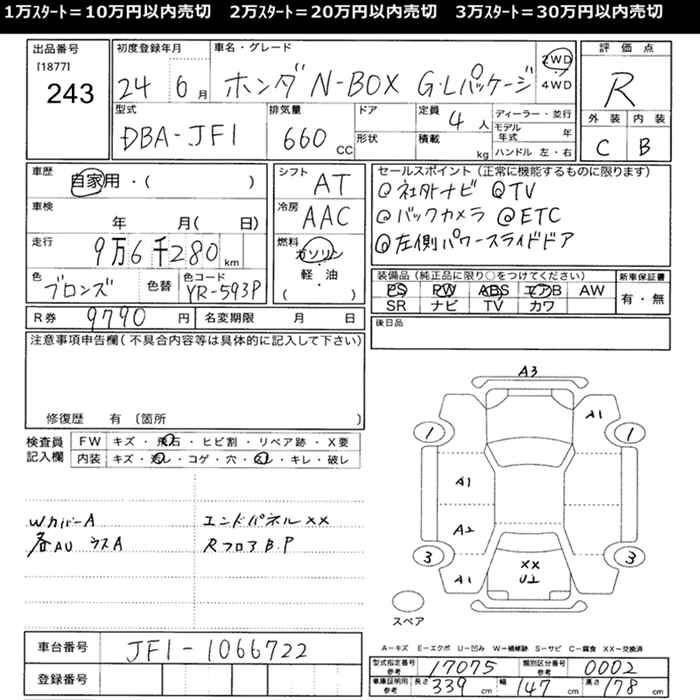 1万ｽﾀｰﾄ＝10万円以内売切　2万ｽﾀｰﾄ＝20万円以内売切　3万ｽﾀｰﾄ＝30万円以内売切
出品番号
[1877]
243
初度登録年月
24 6月
車名・グレード
ホンダ N-BOX G・Lパッケージ
2WD
4WD
評価点
R
外装 内装
C B
型式
DBA-JF1
排気量
660 CC
ドア
形状
定員 4人
積載 kg
ディーラー・並行
モデル年式 年
ハンドル 左・右
車歴
自家用・( )
車検 年 月( 日)
走行
9万6千280km
色
ブロンズ
色替
色コード
YR-593P
シフト
AT
冷房
AAC
燃料
ガソリン
軽・油
( )
セールスポイント(正常に機能するものに限ります)
@社外ナビ @TV
@バックカメラ @ETC
@左側パワースライドドア
装備品(純正品に限り○をつけてください)
PS PW ABS エアB AW
SR ナビ TV カワ
新車保証書
有・無
R券 9790 円
名変期限 月 日
後日品
注意事項申告欄(不具合内容等は具体的に記入して下さい)
修復歴 有 (箇所 )
検査員記入欄
FW キズ・飛石・ヒビ割・リペア跡・X要
内装 キズ・汚レ・コゲ・穴・スレ・キレ・破レ
Wカバー A
各AU ウスA
エンドパネル XX
Rフロア B.P
A3
A1
1 1
A1
A2
3 3
XX
U2
A1
スペア
車台番号 JF1-1066722
登録番号
A－キズ E－エクボ U－凹み W－補修跡 S－サビ C－腐食 XX－交換済
型式指定番号 参考 17075
類別区分番号 参考 0002
車庫証明用 参考 長さ 339 cm 幅 147 cm 高さ 178 cm